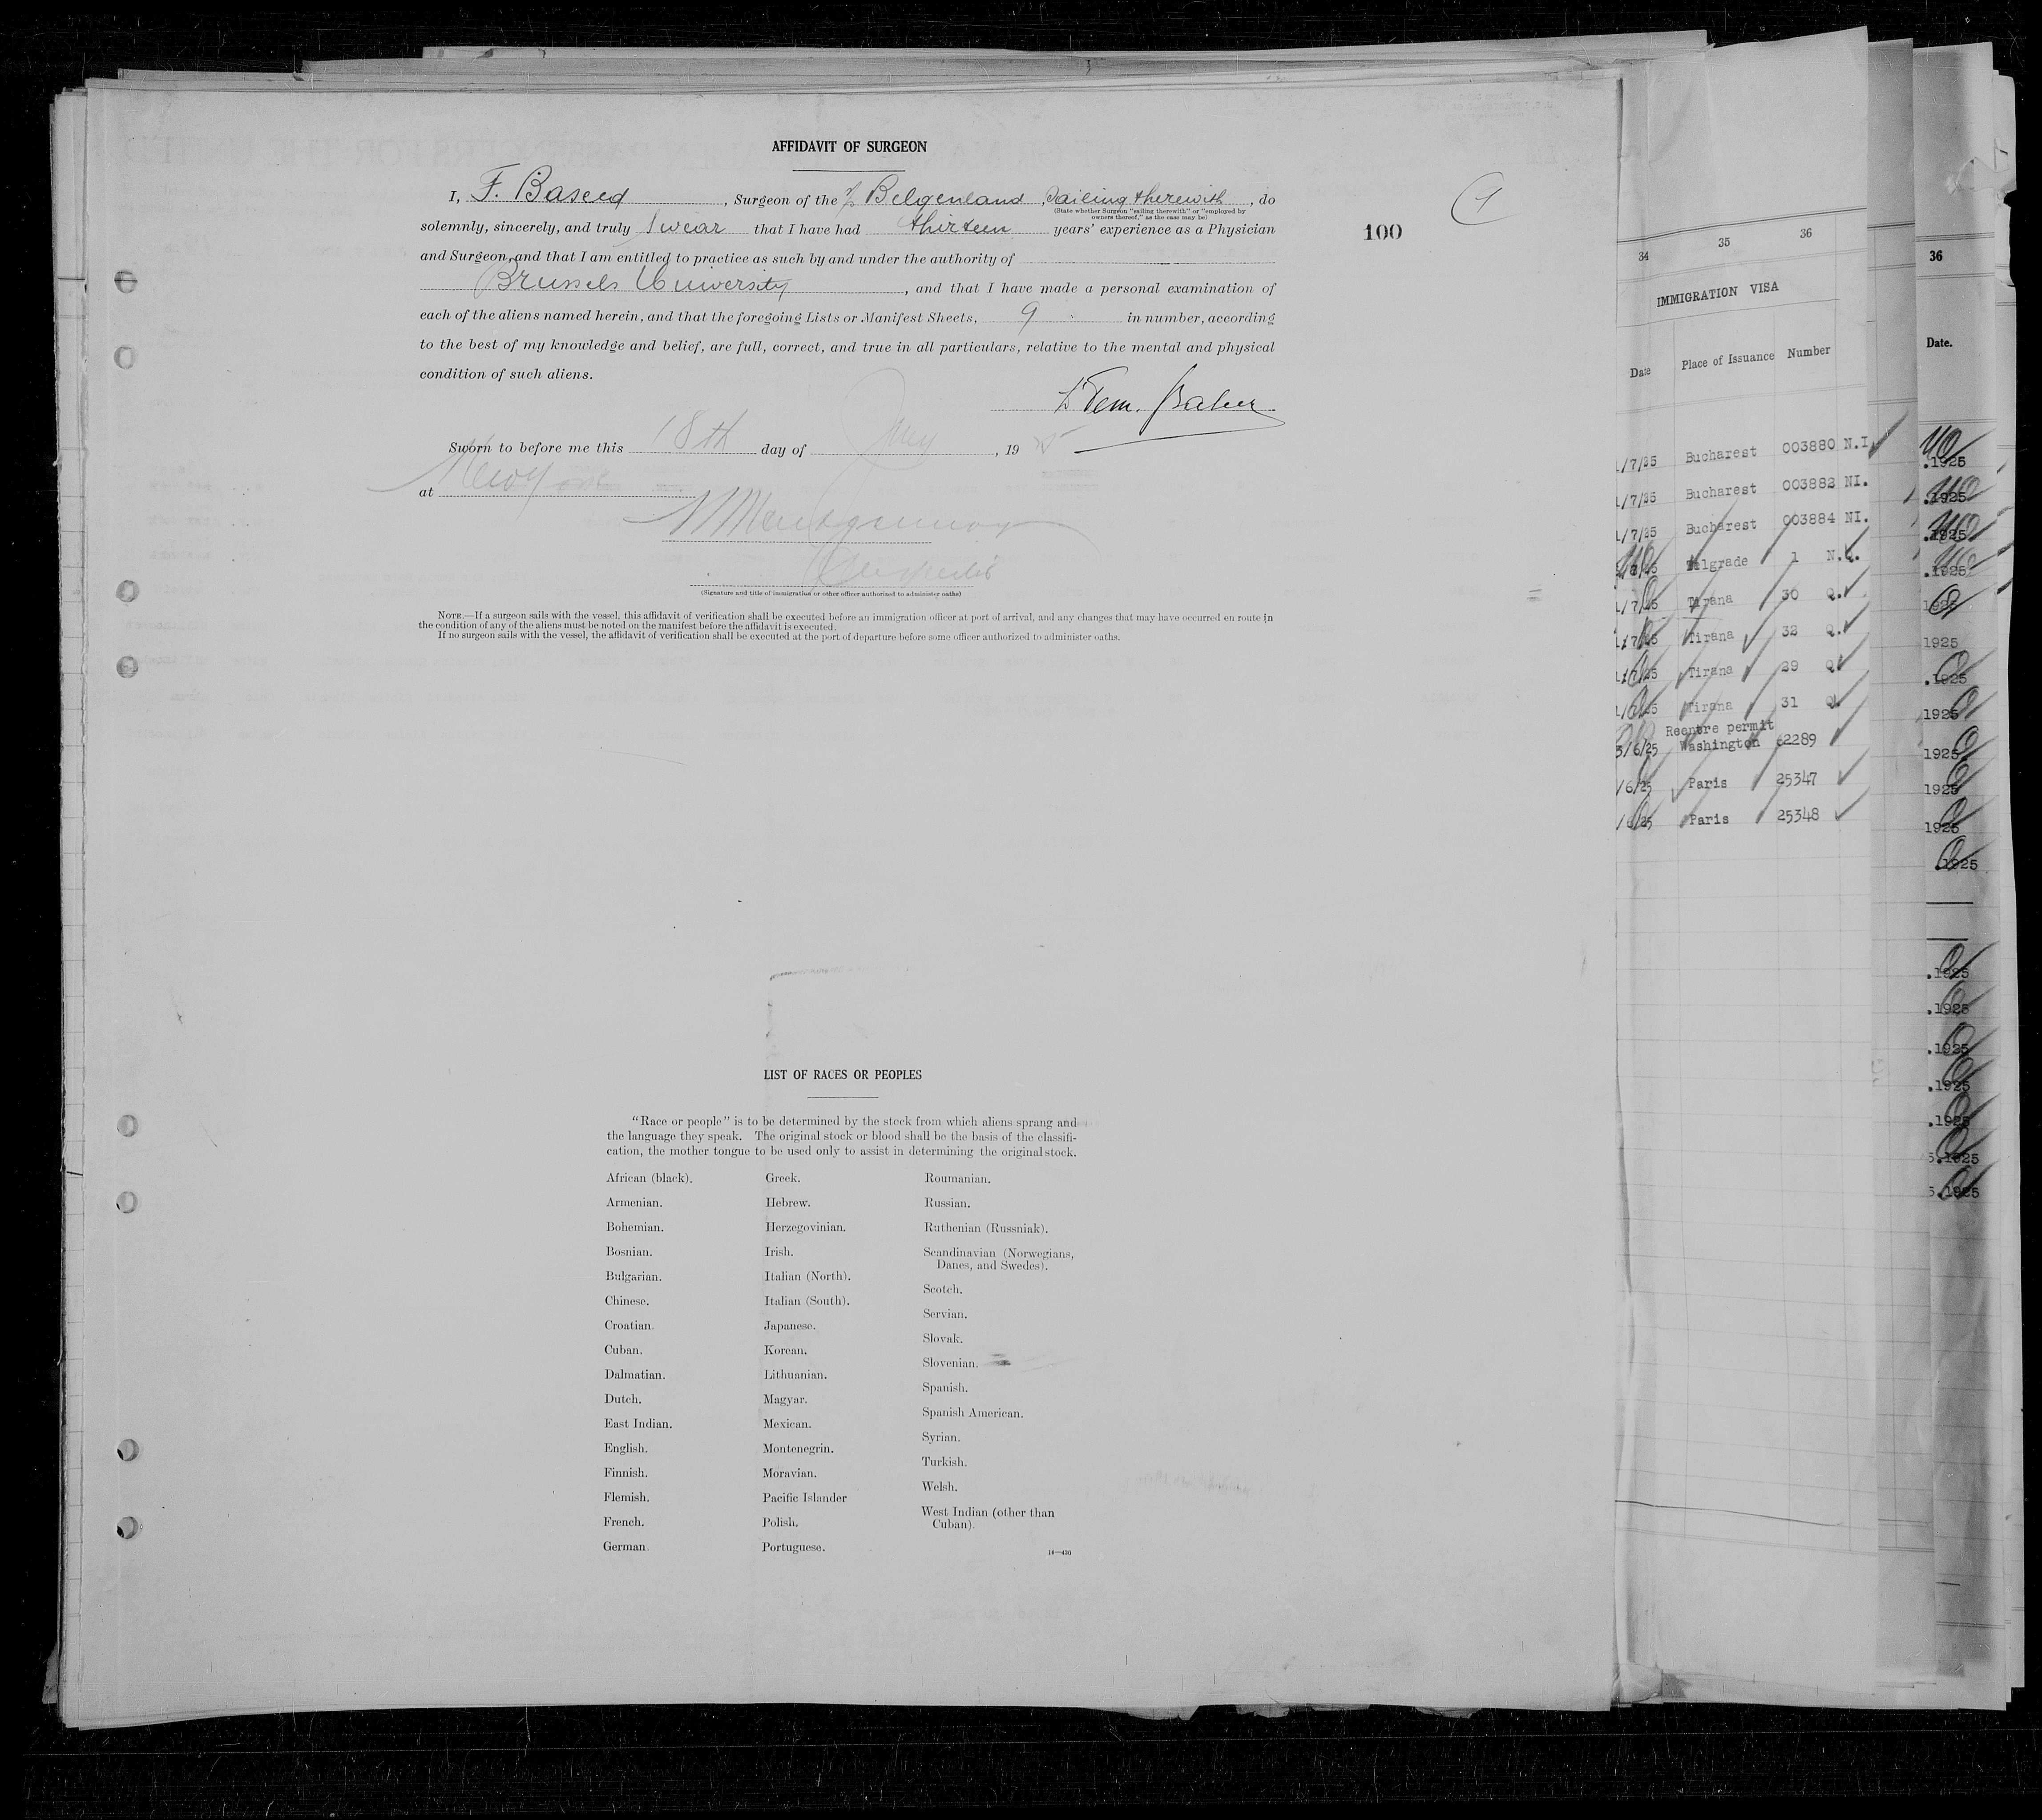 AFFIDAVIT OF SURGEON
I, F. Baseed, Surgeon of the S/S Belgenland, Sailing therewith, do
(State whether Surgeon "sailing therewith" or "employed by
owners thereof," as the case may be)
solemnly, sincerely, and truly swear that I have had thirteen years' experience as a Physician
and Surgeon, and that I am entitled to practice as such by and under the authority of
Brussels University, and that I have made a personal examination of
each of the aliens named herein, and that the foregoing Lists or Manifest Sheets, 9 in number, according
to the best of my knowledge and belief, are full, correct, and true in all particulars, relative to the mental and physical
condition of such aliens.
Sworn to before me this 18th day of May, 1925
at New York
(Signature and title of immigration or other officer authorized to administer oaths)
NOTE.—If a surgeon sails with the vessel, this affidavit of verification shall be executed before an immigration officer at port of arrival, and any changes that may have occurred en route in
the condition of any of the aliens must be noted on the manifest before the affidavit is executed.
If no surgeon sails with the vessel, the affidavit of verification shall be executed at the port of departure before some officer authorized to administer oaths.
100
LIST OF RACES OR PEOPLES
"Race or people" is to be determined by the stock from which aliens sprang and
the language they speak. The original stock or blood shall be the basis of the classifi-
cation, the mother tongue to be used only to assist in determining the original stock.
African (black).
Armenian.
Bohemian.
Bosnian.
Bulgarian.
Chinese.
Croatian.
Cuban.
Dalmatian.
Dutch.
East Indian.
English.
Finnish.
Flemish.
French.
German.
Greek.
Hebrew.
Herzegovinian.
Irish.
Italian (North).
Italian (South).
Japanese.
Korean.
Lithuanian.
Magyar.
Mexican.
Montenegrin.
Moravian.
Pacific Islander
Polish.
Portuguese.
Roumanian.
Russian.
Ruthenian (Russniak).
Scandinavian (Norwegians,
Danes, and Swedes).
Scotch.
Servian.
Slovak.
Slovenian.
Spanish.
Spanish American.
Syrian.
Turkish.
Welsh.
West Indian (other than
Cuban).
14—430
34 35 36
IMMIGRATION VISA
Date Place of Issuance Number
/7/25 Bucharest 003880 N.I.
/7/25 Bucharest 003882 NI.
/7/25 Bucharest 003884 NI.
Belgrade 1 N.Q.
/7/25 Tirana 30 Q.
Tirana 32 Q.
Tirana 29 Q.
Tirana 31 Q.
Reentre permit
3/6/25 Washington 62289
/6/25 Paris 25347
/6/25 Paris 25348
36
Date.
.1925
.1925
.1925
.1925
1925
1925
.1925
1925
1925
1925
1925
.1925
.1925
.1925
.1925
.1925
.1925
5.1925
5.1925